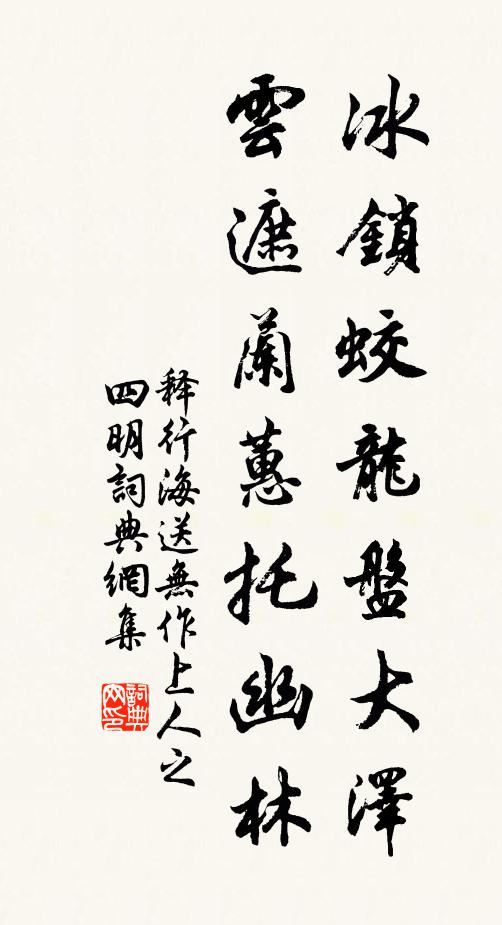 冰鎖蛟龍盤大澤
雲遮蘭蕙托幽林
释行海送無作上人之
四明詞典網集
詞典
网印